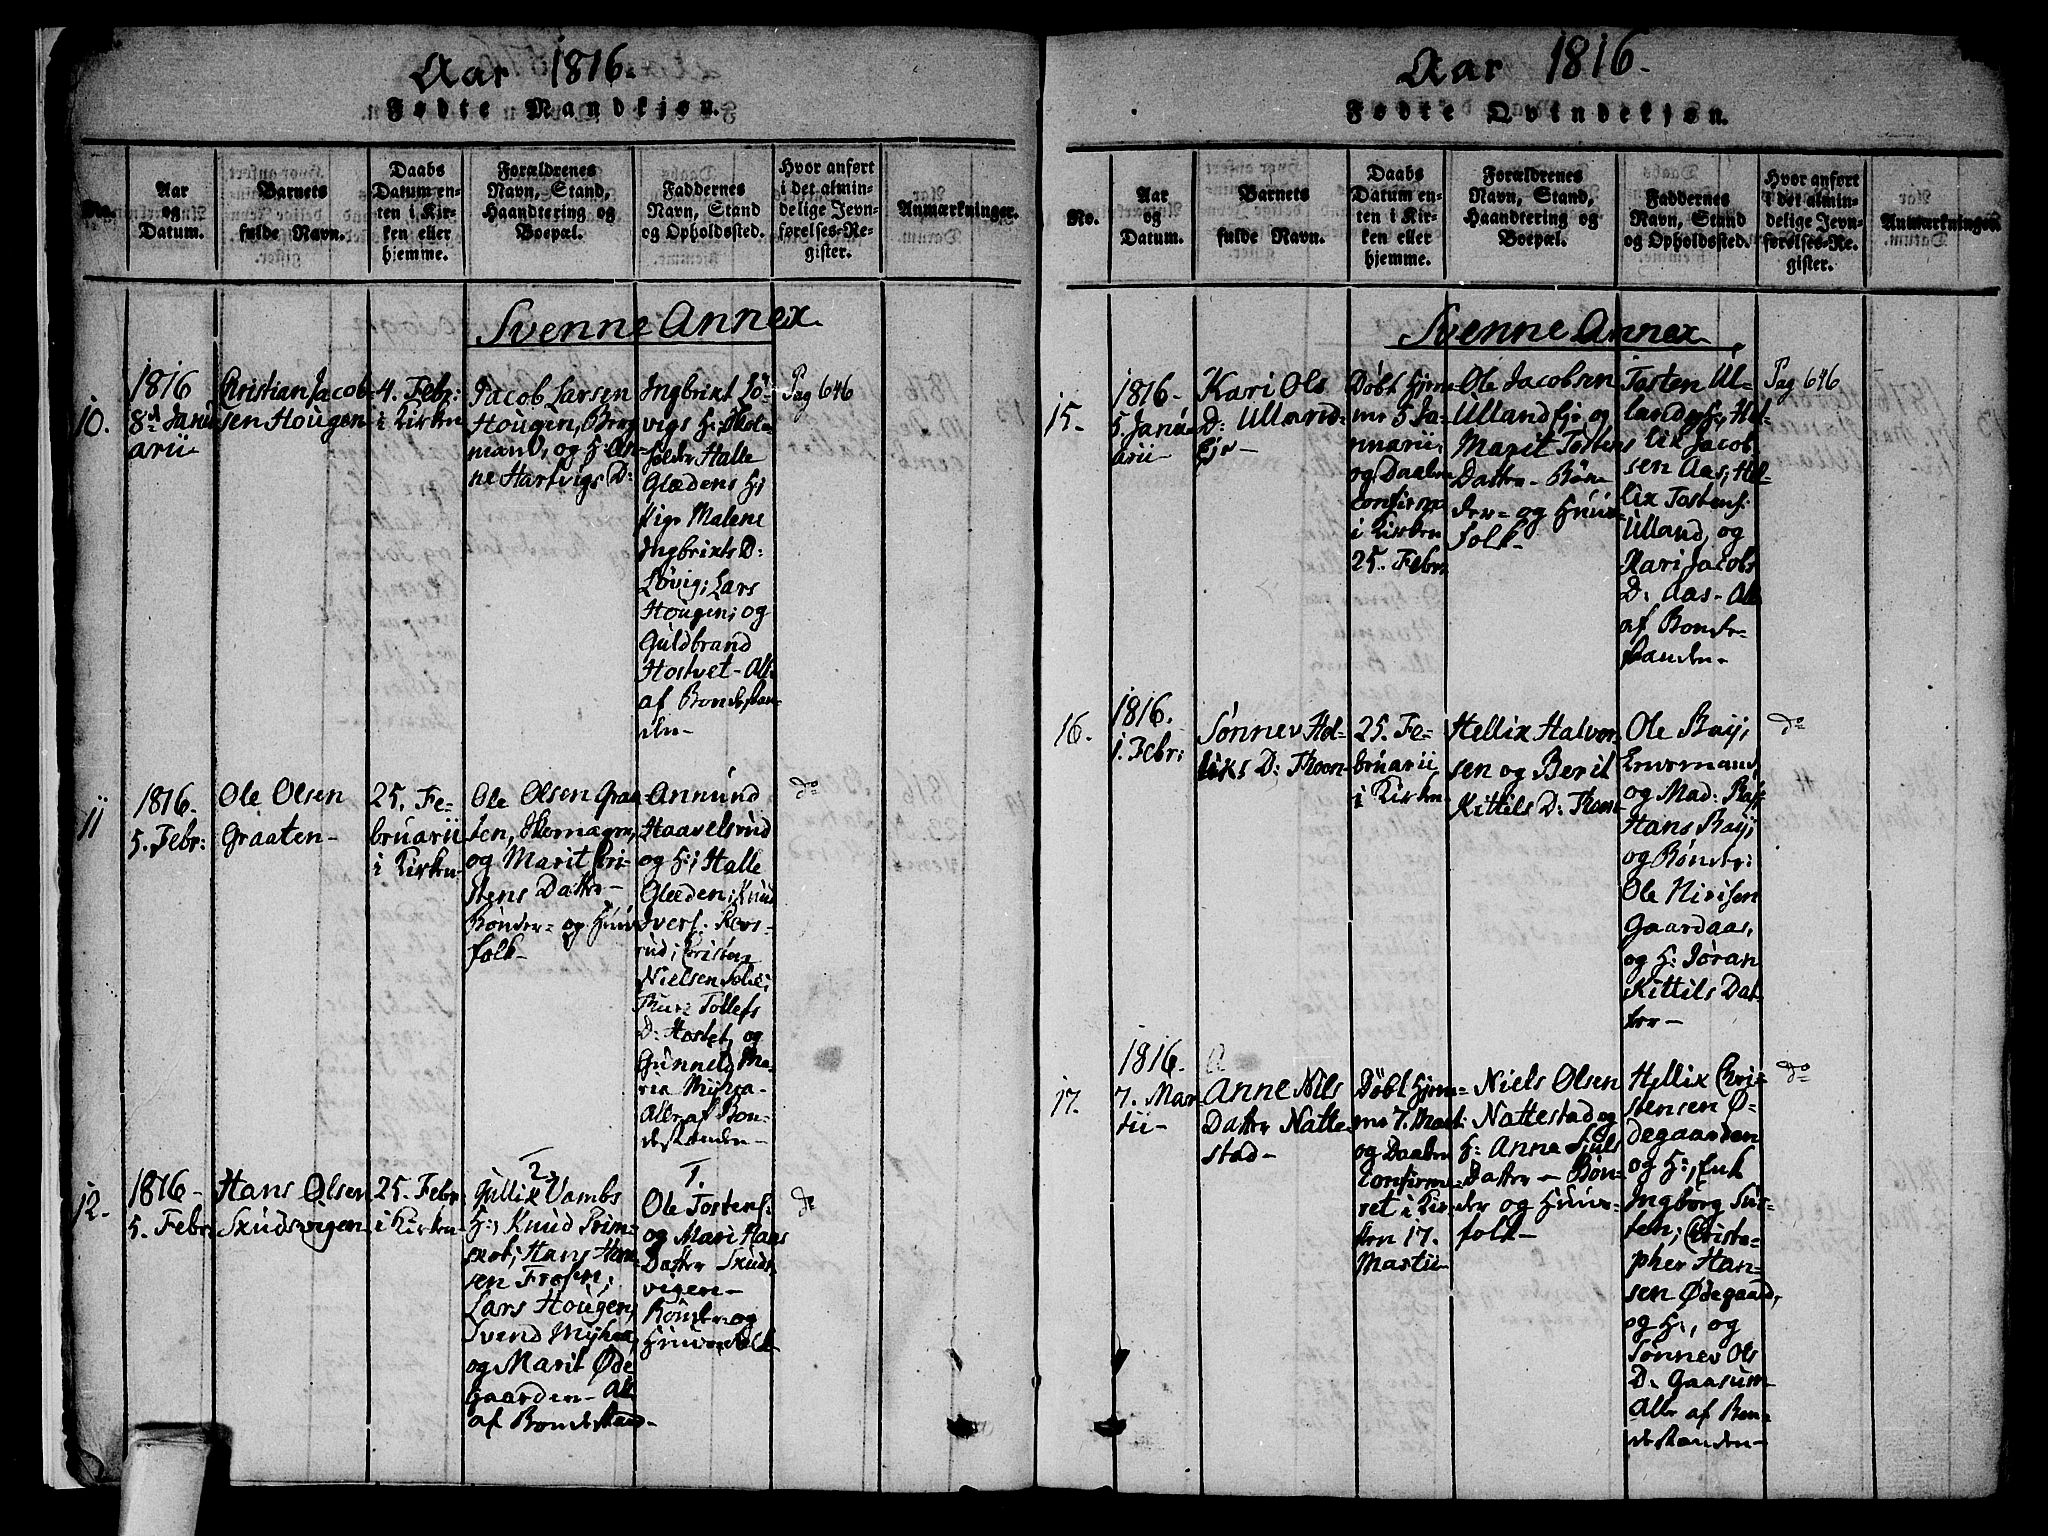 Aar 1816.
Fødte Mandkjøn.
No.
Aar
og
Datum.
Barnets
fulde Navn.
Daabs
Datum en-
ten i Kir-
ken eller
hjemme.
Forældrenes
Navn, Stand,
Haandtering og
Boepæl.
Faddernes
Navn, Stand
og Opholdssted.
Hvor anført
i det almin-
delige Jevn-
førelses-Re-
gister.
Anmærkninger.
Svenne Annex.
10.
1816
8d Janu
arii
Christian Jacob-
sen Hougen
4. Febr:
i Kirken
Jacob Larsen
Hougen, Berg
mand, og H: An-
ne Hartvigs D:
Ingbrixt Lö-
vigs H:
Halle
Glædens H:
Pige Malene
Ingbrixts D:
Lövig; Lars
Hougen; og
Guldbrand
Hostvet - Alle
af Bondestan-
den -
Pag 646
11
1816.
5. Febr:
Ole Olsen
Graaten -
25. Fe-
bruarii
i Kirken
Ole Olsen Graa-
ten,
og Marit Cri-
stens Datter -
Bønder- og Huus
folk -
Annund
Haavelsrud
og H:; Halle
Glæden; Knud
Ivers:
rud; Cristen
Nielsen
Thuri Tollefs
D: Hostet, og
Gunneld Ma-
ria Myhra -
Alle af Bon-
destanden -
do
12.
1816 -
5. Febr
Hans Olsen
Skudsvigen
25. Febr
i Kirken
2.
Gullix Vambs
H:, Knud Prim-
skot; Hans Han-
sen
Lars Hougen,
Svend Myhra,
og Marit Øde
gaarden - Alle
af Bondestand -
1.
Ole Tostens:
og Mari Hans
Datter Skuds
vigen -
Bønder og
Huusfolk
do
Aar 1816.
Fødte Qvindekjøn.
No.
Aar
og
Datum.
Barnets
fulde Navn.
Daabs
Datum en-
ten i Kir-
ken eller
hjemme.
Forældrenes
Navn, Stand,
Haandtering og
Boepæl.
Faddernes
Navn, Stand
og Opholdssted.
Hvor anført
i det almin-
delige Jevn-
førelses-Re-
gister.
Anmærkninger.
Svenne Annex.
15.
1816.
5 Janu-
arii -
Kari Ols
D: Ulland-
eje -
Døbt hjem-
me 5 Ja-
nuarii,
og Daaben
confirm
i Kirken
25. Febr:
Ole Jacobsen
Ullandeje og
Marit Tostens
Datter - Bøn-
der- og Huus-
folk -
Tosten Ul-
land, Hel-
lix Jacob
sen Aas, Hel-
lix Tostens:
Ulland, og
Kari Jacobs
D: Aas - Alle
af Bonde-
standen -
Pag 646
16.
1816.
1. Febr:
Sønnev Hel-
lixs D: Thoon
25. Fe-
bruarii
i Kirken
Hellix Halvor-
sen og Berit
Kittils D: Thoon
Ole Raij,
og Mad: Raij
Hans Raij;
og Bønder:
Ole Nirisen
Gaardaas,
og H: Jøran
Kittils Dat
ter -
do
17.
1816.
7. Mar-
tii -
Anne Nils
Datter Natte-
stad -
Døbt hjem-
me 7. Mart:
og Daaben
confirme-
ret i Kir
ken 17.
Martii
Niels Olsen
Nattestad og
H: Anna Juls
Datter - Bøn-
der og Huus-
folk -
Hellix Chri-
stensen Ø-
degaarden
og H:, Enk
Ingborg
Christo-
pher Han-
sen Ødegaard,
og H:, og
Sønnev Ols
D: Gaasum
Alle af Bon-
destanden -
do